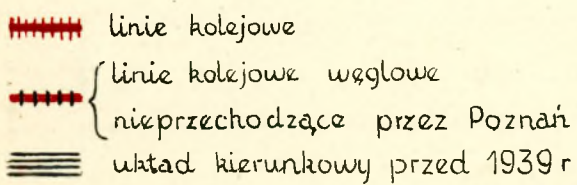 linie kolejowe
linie kolejowe węglowe
nieprzechodzące przez Poznań
układ kierunkowy przed 1939 r